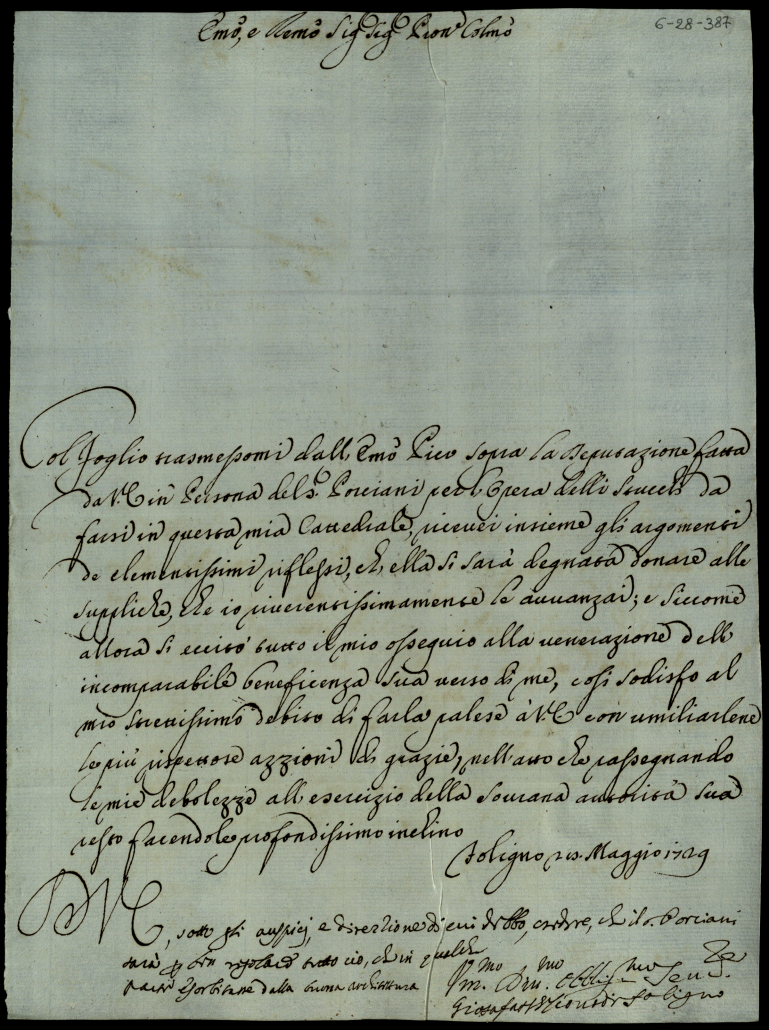 6-28-387
Emo, e Remo Sigr Sigr Pron Colmo
Col foglio trasmessomi dall Emo Pico sopra la Deputazione fatta
da V.E. in Persona del S. Porciani per l'Opera delli Stucchi da
farsi in questa mia Cattedrale, ricevei insieme gli argomenti
de clementissimi riflessi, ch'ella si sarà degnata donare alle
suppliche, che io riverentissimamente le avvanzai; e siccome
allora si eccitò tutto il mio ossequio alla venerazione dell
incomparabile beneficenza sua verso di me, così sodisfo al
mio strettissimo debito di farla palese à V.E. con umiliarlene
le più rispettose azzioni di grazie, nell'atto che rassegnando
le mie debolezze all'esercizio della sovrana autorità sua
resto facendole profondissimo inchino
Foligno Maggio 1729
D V E, sotto gli auspicj, e direzzione di cui debbo, credere, che il S. Porciani
sarà per ben regolare tutto ciò, che in qualche
parte esorbitasse dalla buona architettura
mo Obbligmo
Giosafatt Foligno